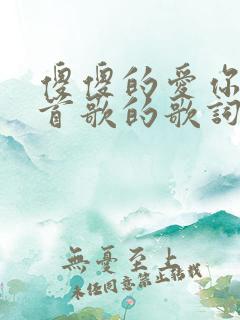 傻傻的愛你
首歌的歌詞
無憂至上
未經同意禁止轉載